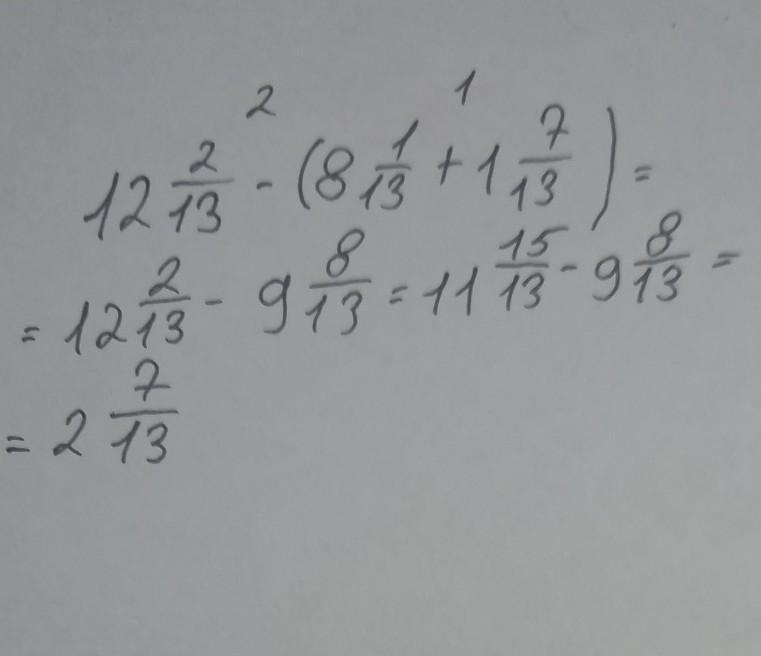 2 1
12 2/13 - (8 1/13 + 1 7/13) =
= 12 2/13 - 9 8/13 = 11 15/13 - 9 8/13 =
= 2 7/13